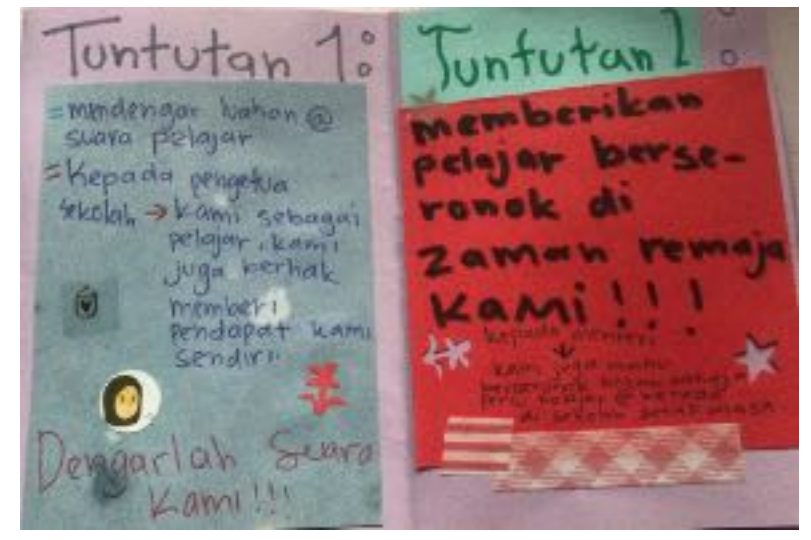 Tuntutan 1:
= mendengar luahan @
suara pelajar
= Kepada pengetua
sekolah → kami sebagai
pelajar, kami
juga berhak
memberi
pendapat kami
sendiri.
Dengarlah Suara
Kami!!!
Tuntutan 2
:
memberikan
pelajar berse-
ronok di
zaman remaja
Kami!!!
kepada menteri
↓
kami juga mahu
berseronok bukan sahaja
perlu belajar @ berada
di sekolah setiap masa.